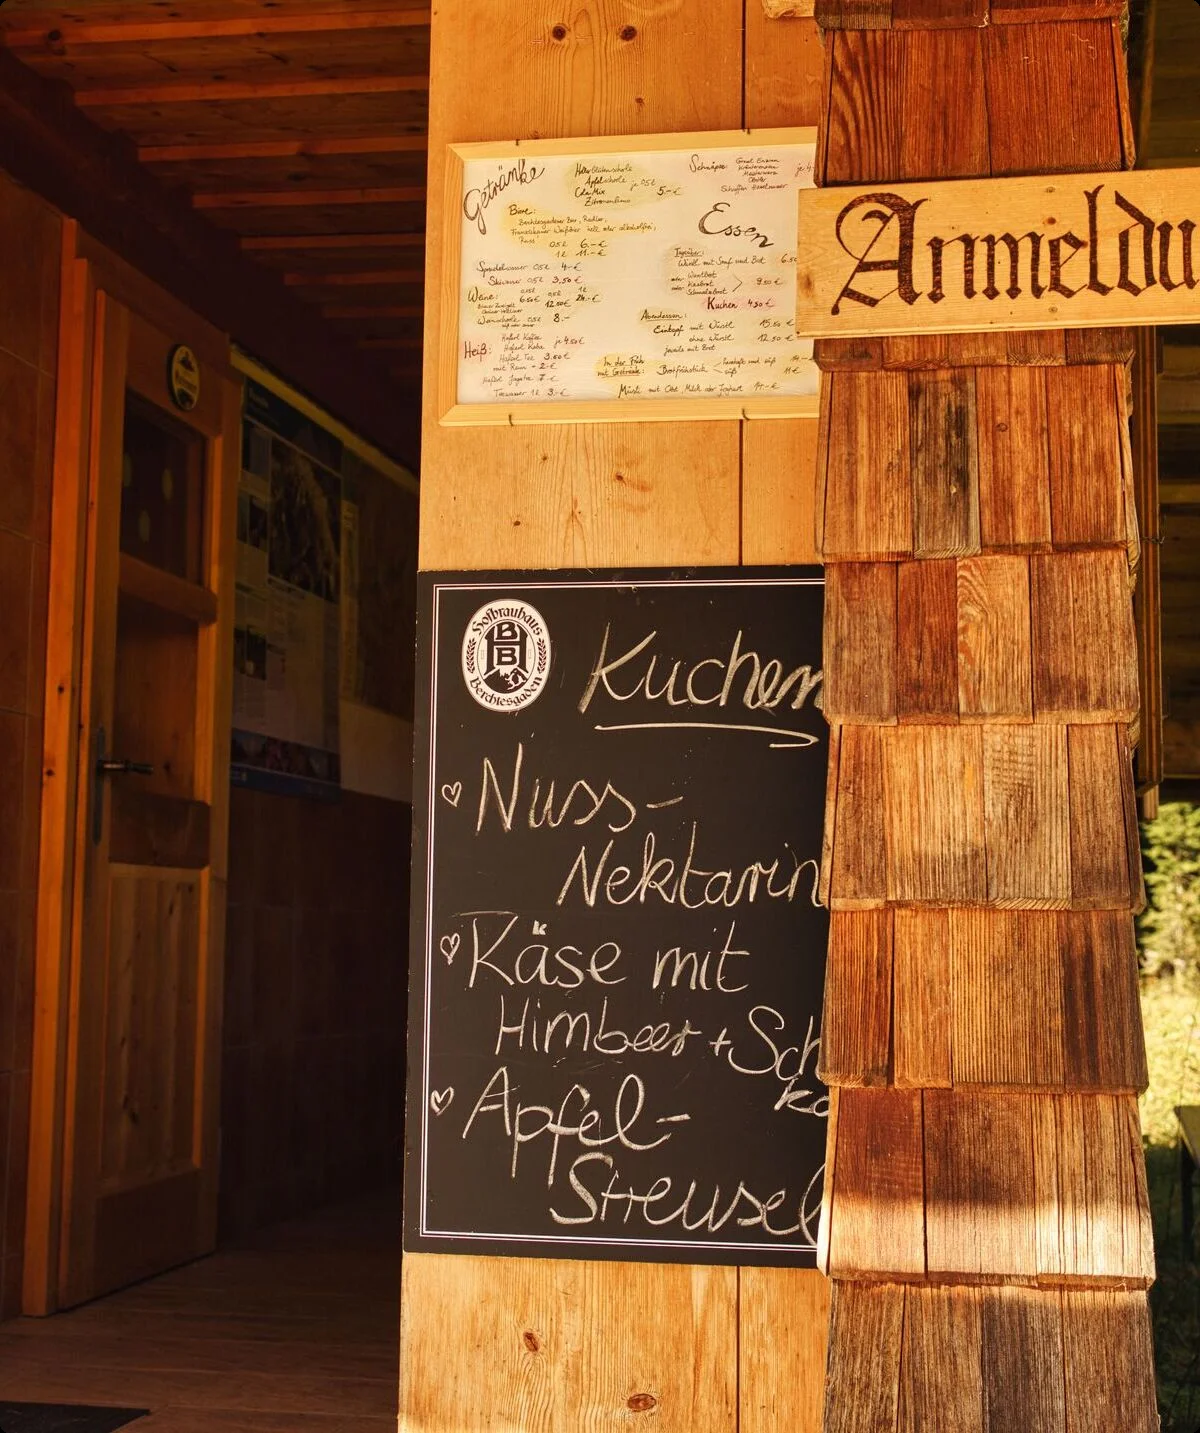 Getränke
Apfelschorle je 0,5l 5.-€
Cola Mix
Zitronenlimo
Biere:
Berchtesgadener Bier, Radler,
Franziskaner Weißbier hell oder alkoholfrei,
Russ 0,5l 6.-€
1l 11.-€
Sprudelwasser 0,5l 4.-€
Skiwasser 0,5l 3,50€
Weine:
Weinschorle 0,5l 8.-
Heiß: Haferl Kaffee je 4.50€
Haferl Kaba
Haferl Tee 3.50€
mit Rum + 2.-€
Haferl Jagatee 7.-€
Teewasser 1l 3.-€
Schnäpse:
Essen
Tagsüber:
Würstl mit Senf und Brot 6.50
oder Wurstbrot
oder Kasbrot 9.50€
Schmalzbrot
Kuchen 4.50€
Abendessen:
Eintopf mit Würstl 15.50€
ohne Würstl 12.50€
jeweils mit Brot
In der Früh
mit Getränk: Brotfrühstück herzhaft und süß
süß 11€
Müsli mit Obst, Milch oder Joghurt 11.-€
Anmeldu
Hofbrauhaus
BB
Berchtesgaden
Kuchen
Nuss-
Nektarin
Käse mit
Himbeer + Sch
ko
Apfel-
Streusel